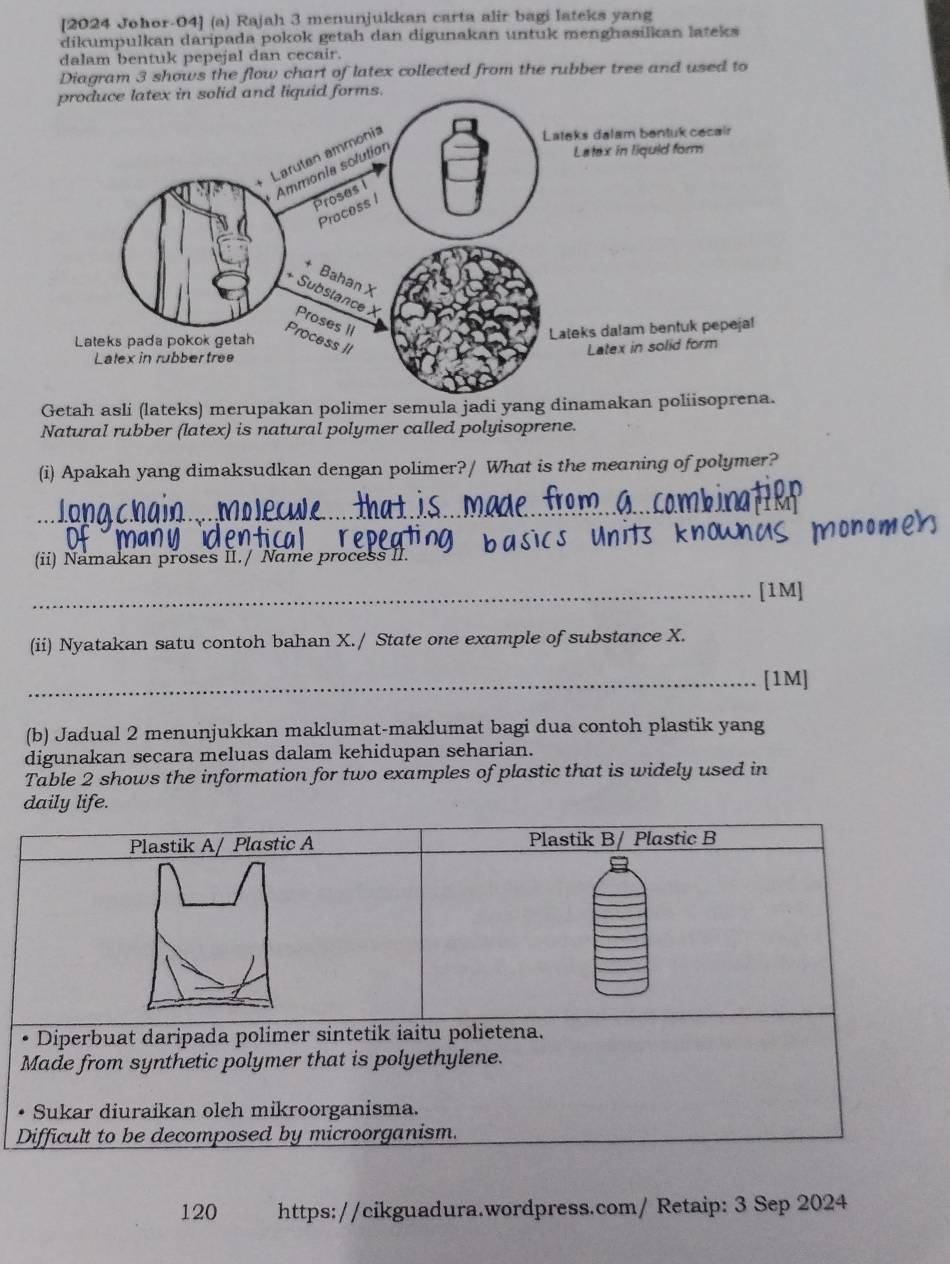 [2024 Johor-04] (a) Rajah 3 menunjukkan carta alir bagi lateks yang
dikumpulkan daripada pokok getah dan digunakan untuk menghasilkan lateks
dalam bentuk pepejal dan cecair.
Diagram 3 shows the flow chart of latex collected from the rubber tree and used to
produce latex in solid and liquid forms.
+ Larutan ammonia
+ Ammonia solution
Proses I
Process I
Lateks dalam bentuk cecair
Latex in liquid form
+ Bahan X
+ Substance X
Proses II
Process II
Lateks pada pokok getah
Latex in rubber tree
Lateks dalam bentuk pepejal
Latex in solid form
Getah asli (lateks) merupakan polimer semula jadi yang dinamakan poliisoprena.
Natural rubber (latex) is natural polymer called polyisoprene.
(i) Apakah yang dimaksudkan dengan polimer?/ What is the meaning of polymer?
long chain molecule that is made from a combination [1M]
Of many identical repeating basics units known as monomers
(ii) Namakan proses II./ Name process II.
[1M]
(ii) Nyatakan satu contoh bahan X./ State one example of substance X.
[1M]
(b) Jadual 2 menunjukkan maklumat-maklumat bagi dua contoh plastik yang
digunakan secara meluas dalam kehidupan seharian.
Table 2 shows the information for two examples of plastic that is widely used in
daily life.
Plastik A/ Plastic A
Plastik B/ Plastic B
• Diperbuat daripada polimer sintetik iaitu polietena.
Made from synthetic polymer that is polyethylene.
• Sukar diuraikan oleh mikroorganisma.
Difficult to be decomposed by microorganism.
120 https://cikguadura.wordpress.com/ Retaip: 3 Sep 2024